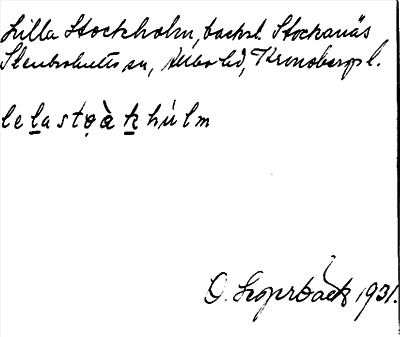 Lilla Stockholm, backst. Stockanäs
Stenbrohults sn, Allbo hd, Kronobergs l.
le l̲a stọà k̲ hú l m
O. 1931.